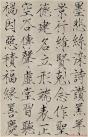 墨悲絲染詩讚羔羊
景行維賢剋念作聖
德建名立形端表正
空谷傳聲虛堂習聽
禍因惡積福緣善慶